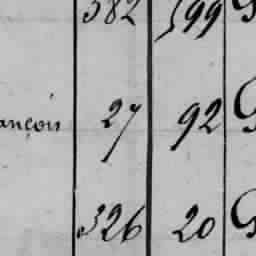 382 599
ançois 27 92
326 20